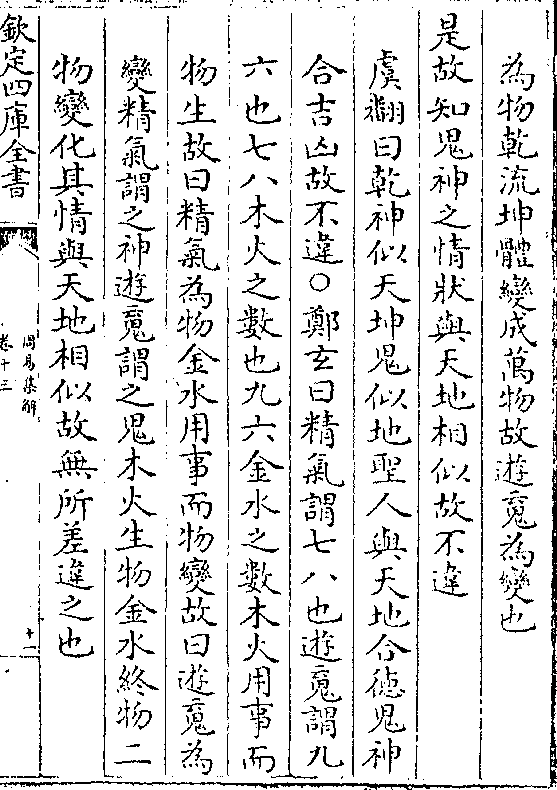 為物乾流坤體變成萬物故遊䰟為變也
是故知鬼神之情狀與天地相似故不違
虞翻曰乾神似天坤鬼似地聖人與天地合徳鬼神
合吉凶故不違○鄭玄曰精氣謂七八也遊䰟謂九
六也七八木火之數也九六金水之數木火用事而
物生故曰精氣為物金水用事而物變故曰遊䰟為
變精氣謂之神遊䰟謂之鬼木火生物金水終物二
物變化其情與天地相似故無所差違之也
欽定四庫全書
周易集解
卷十三
十二